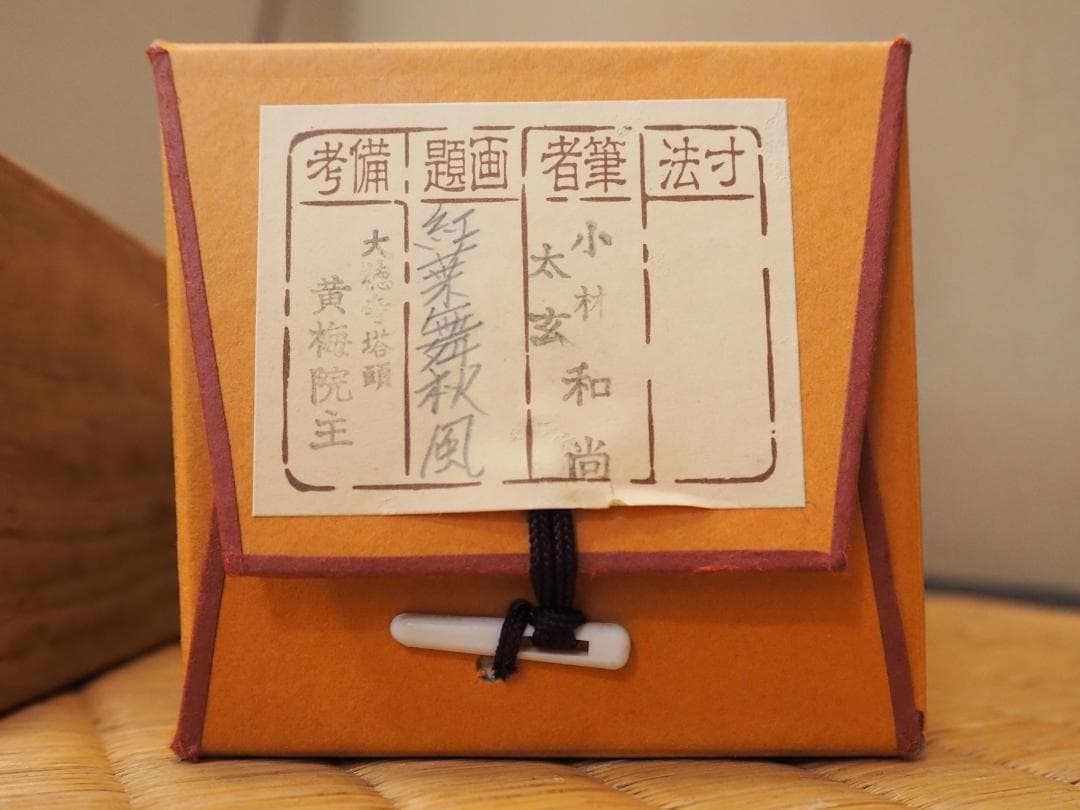 寸法
筆者
小林
太玄
和尚
画題
紅葉舞秋風
備考
大徳寺塔頭
黄梅院主